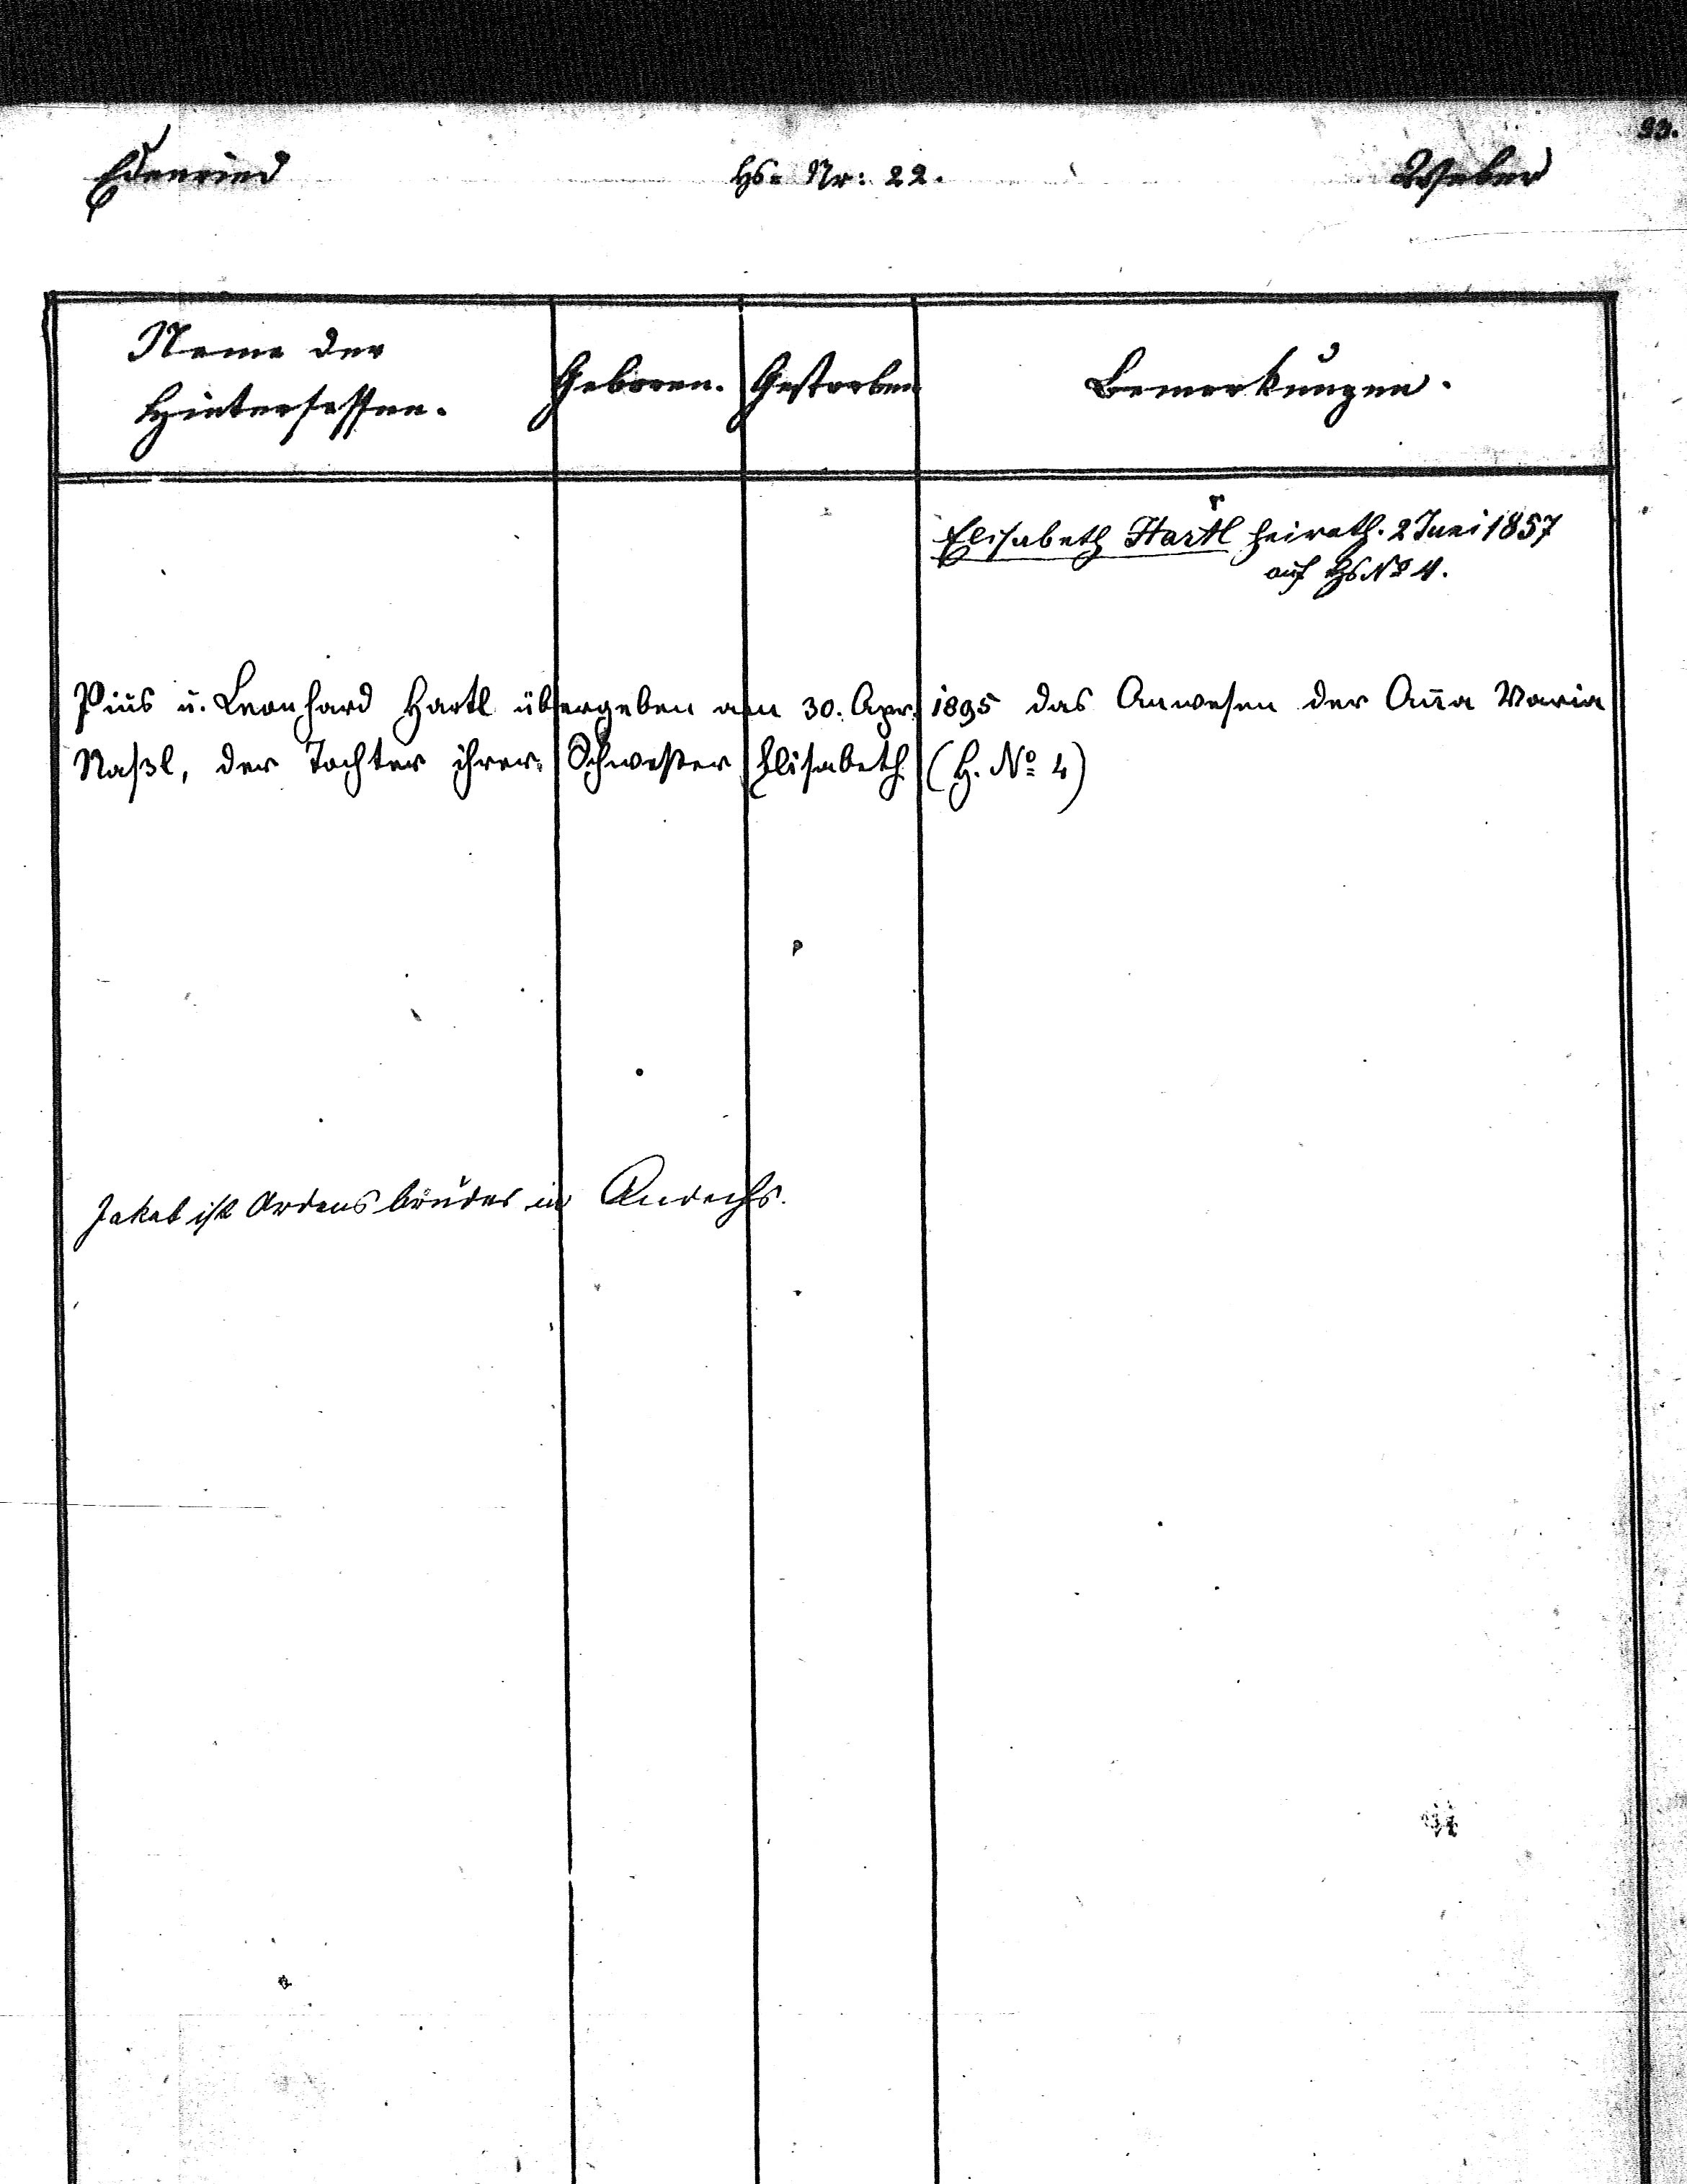 23.
Edenried Hs. Nr: 22. Weber
Name der
Hintersassen. Geboren. Gestorben Bemerkungen.
Elisabeth Hartl heirath. 2 Juni 1857
auf Hs No 4.
Pius u. Leonhard Hartl übergeben am 30. Apr. 1895 das Anwesen der Anna Maria
Naßl, der Tochter ihrer Schwester Elisabeth (H. No 4)
Jakob ist Ordensbruder in Andechs.